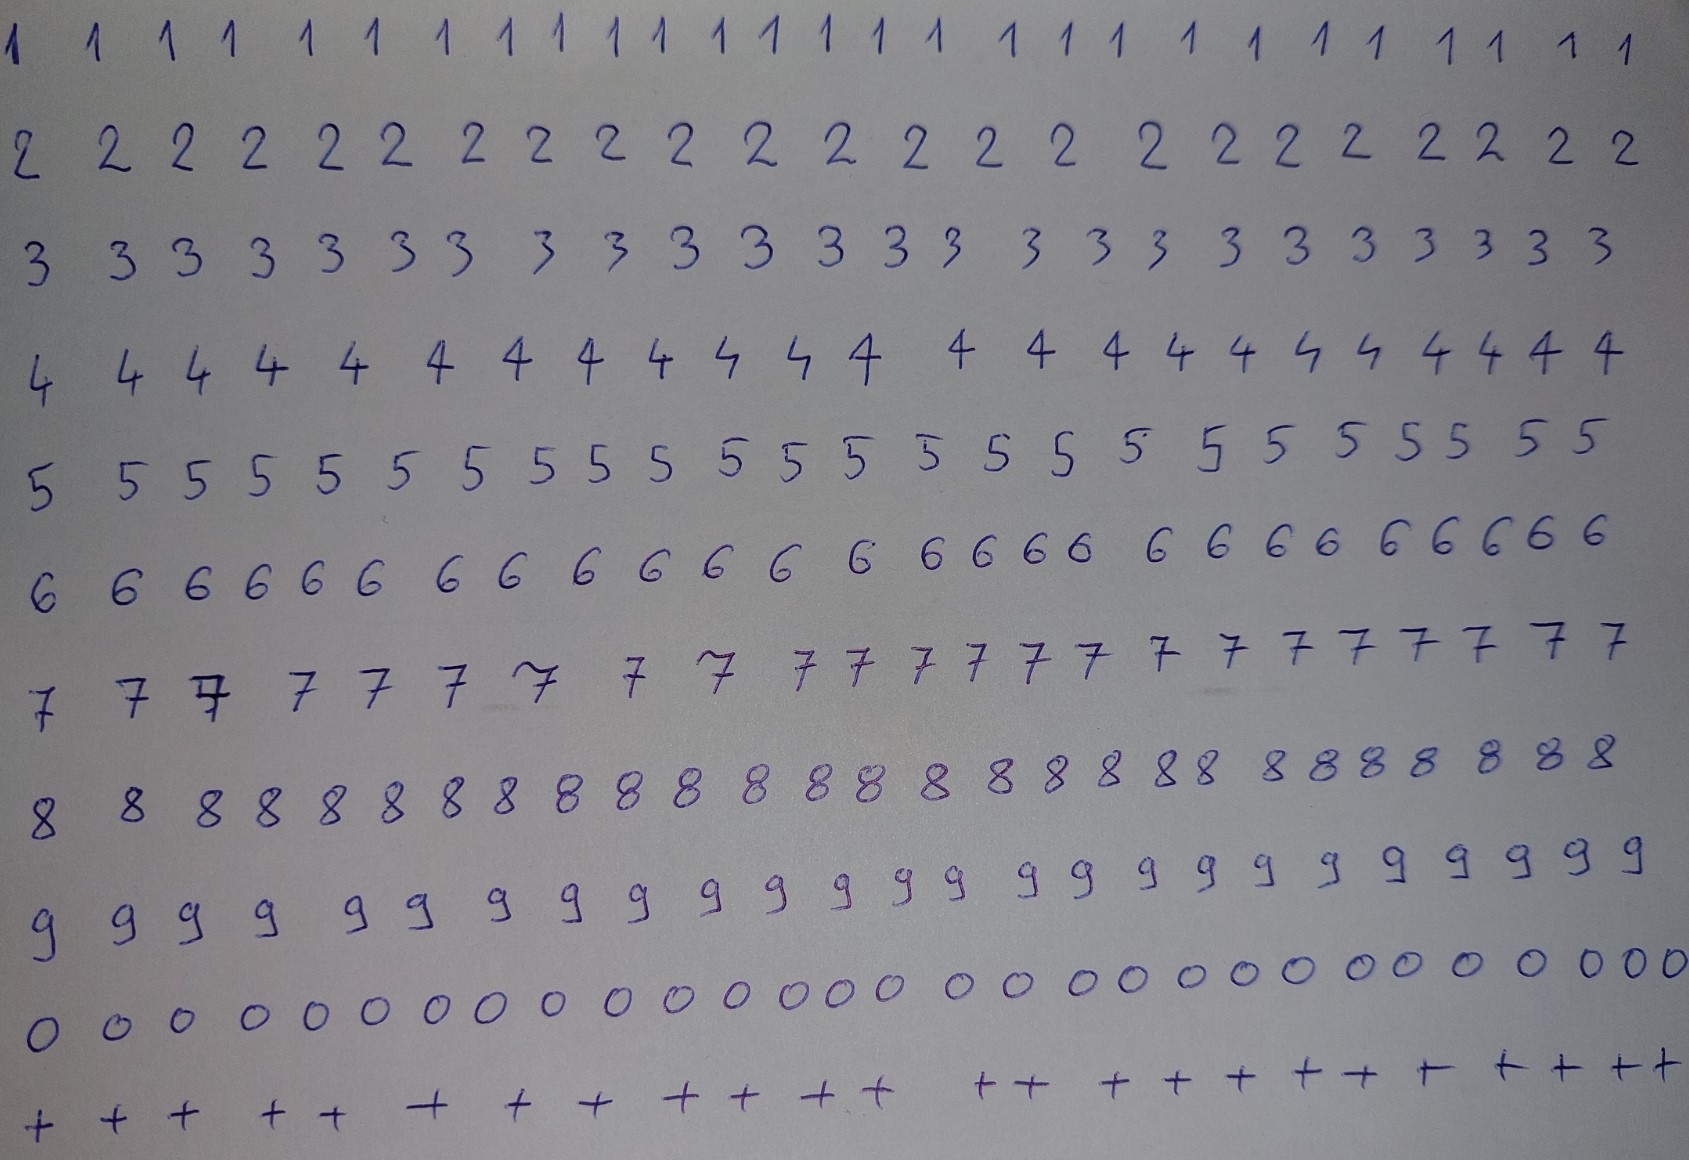 1 1 1 1 1 1 1 1 1 1 1 1 1 1 1 1 1 1 1 1 1 1 1 1 1 1 1
2 2 2 2 2 2 2 2 2 2 2 2 2 2 2 2 2 2 2 2 2 2 2
3 3 3 3 3 3 3 3 3 3 3 3 3 3 3 3 3 3 3 3 3 3 3 3
4 4 4 4 4 4 4 4 4 4 4 4 4 4 4 4 4 4 4 4 4 4 4
5 5 5 5 5 5 5 5 5 5 5 5 5 5 5 5 5 5 5 5 5 5 5 5
6 6 6 6 6 6 6 6 6 6 6 6 6 6 6 6 6 6 6 6 6 6 6 6 6 6
7 7 7 7 7 7 7 7 7 7 7 7 7 7 7 7 7 7 7 7 7 7 7
8 8 8 8 8 8 8 8 8 8 8 8 8 8 8 8 8 8 8 8 8 8 8 8 8 8 8
9 9 9 9 9 9 9 9 9 9 9 9 9 9 9 9 9 9 9 9 9 9 9 9 9
0 0 0 0 0 0 0 0 0 0 0 0 0 0 0 0 0 0 0 0 0 0 0 0 0 0 0 0 0
+ + + + + + + + + + + + + + + + + + + + + + + +